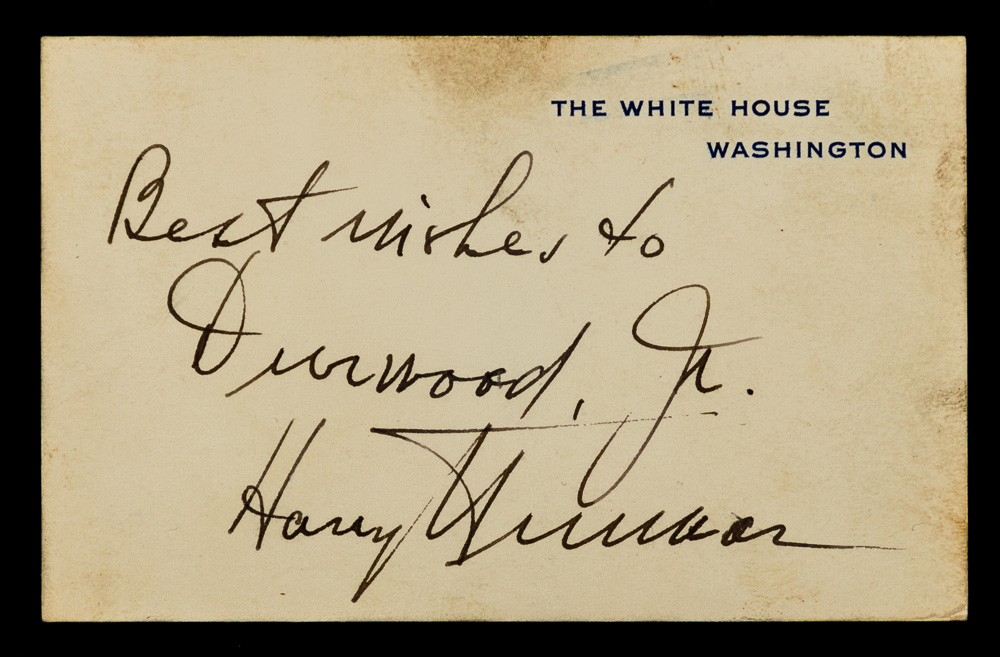 THE WHITE HOUSE
WASHINGTON
Best wishes to
Durwood, Jr.
Harry Truman